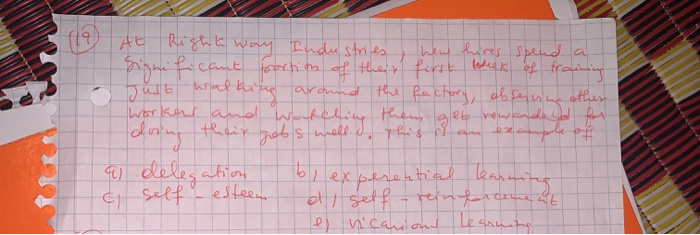 (19) At Right way Industries, new hires spend a
significant portion of their first week of training
Just walking around the factory, observing other
workers and watching them get rewarded for
doing their jobs well. This is an example of
a) delegation b) experential learning
c) self-esteem d) self-reinforcement
e) vicarious learning